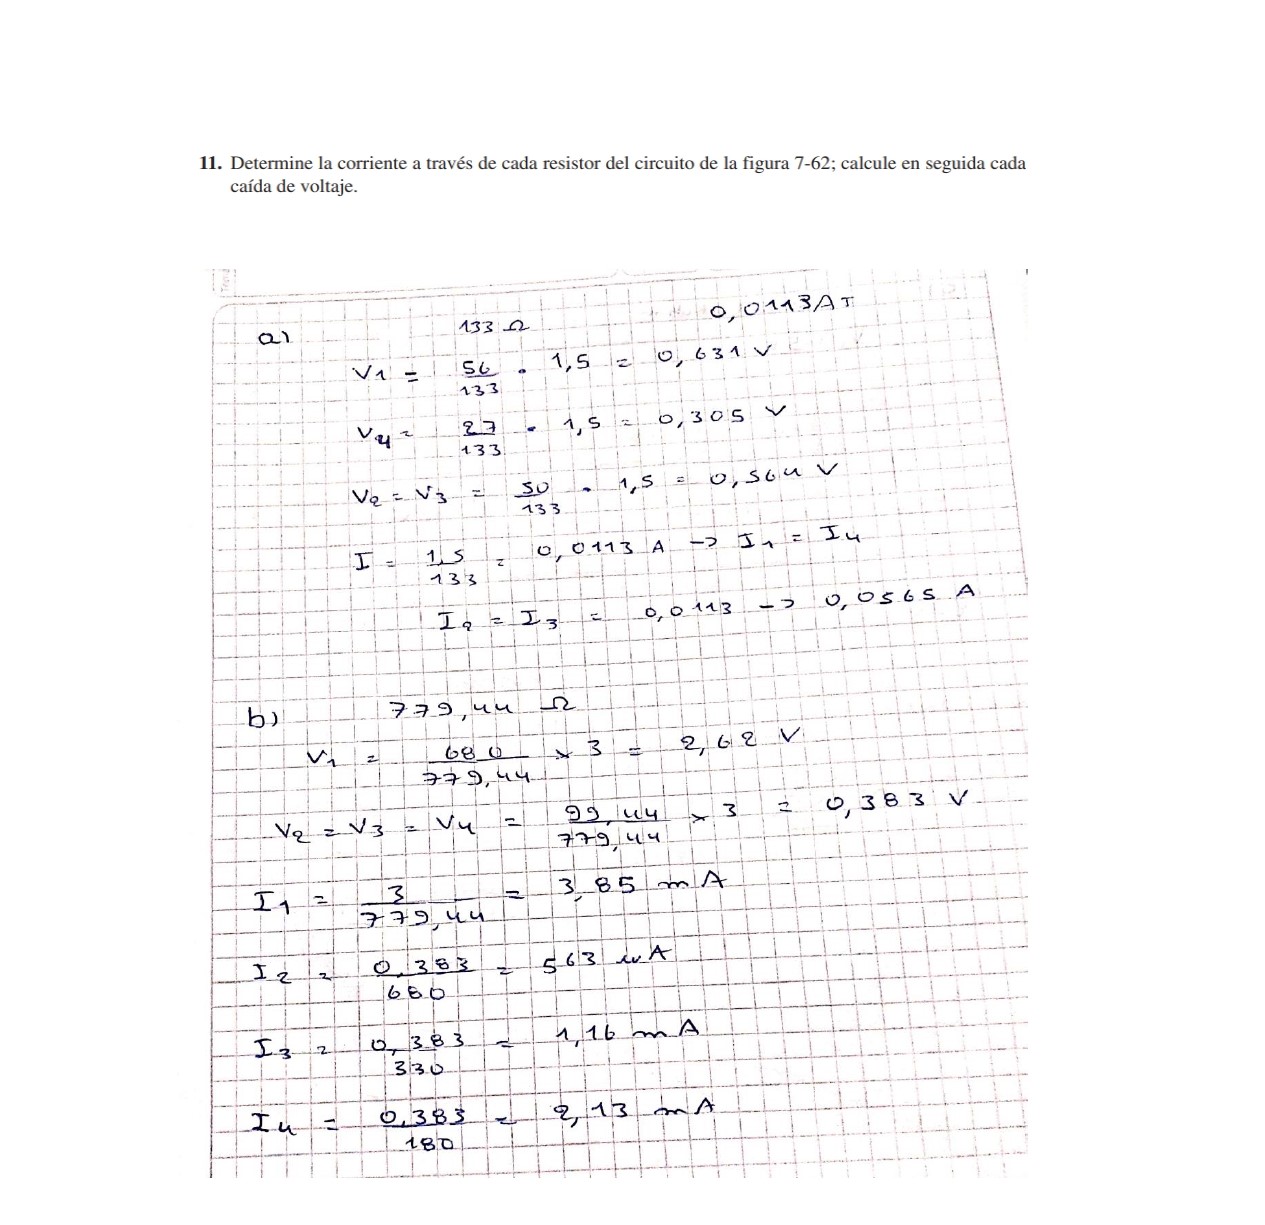 11. Determine la corriente a través de cada resistor del circuito de la figura 7-62; calcule en seguida cada
caída de voltaje.
a) 133 Ω 0,0113A T
V1 = 56/133 . 1,5 = 0,631 V
V4 = 27/133 . 1,5 = 0,305 V
V2 = V3 = 50/133 . 1,5 = 0,564 V
I = 1,5/133 = 0,0113 A -> I1 = I4
I2 = I3 = 0,0113 -> 0,0565 A
b) 779,44 Ω
V1 = 680/779,44 x 3 = 2,62 V
V2 = V3 = V4 = 99,44/779,44 x 3 = 0,383 V
I1 = 3/779,44 = 3,85 mA
I2 = 0,383/680 = 563 uA
I3 = 0,383/330 = 1,16 mA
I4 = 0,383/180 = 2,13 mA